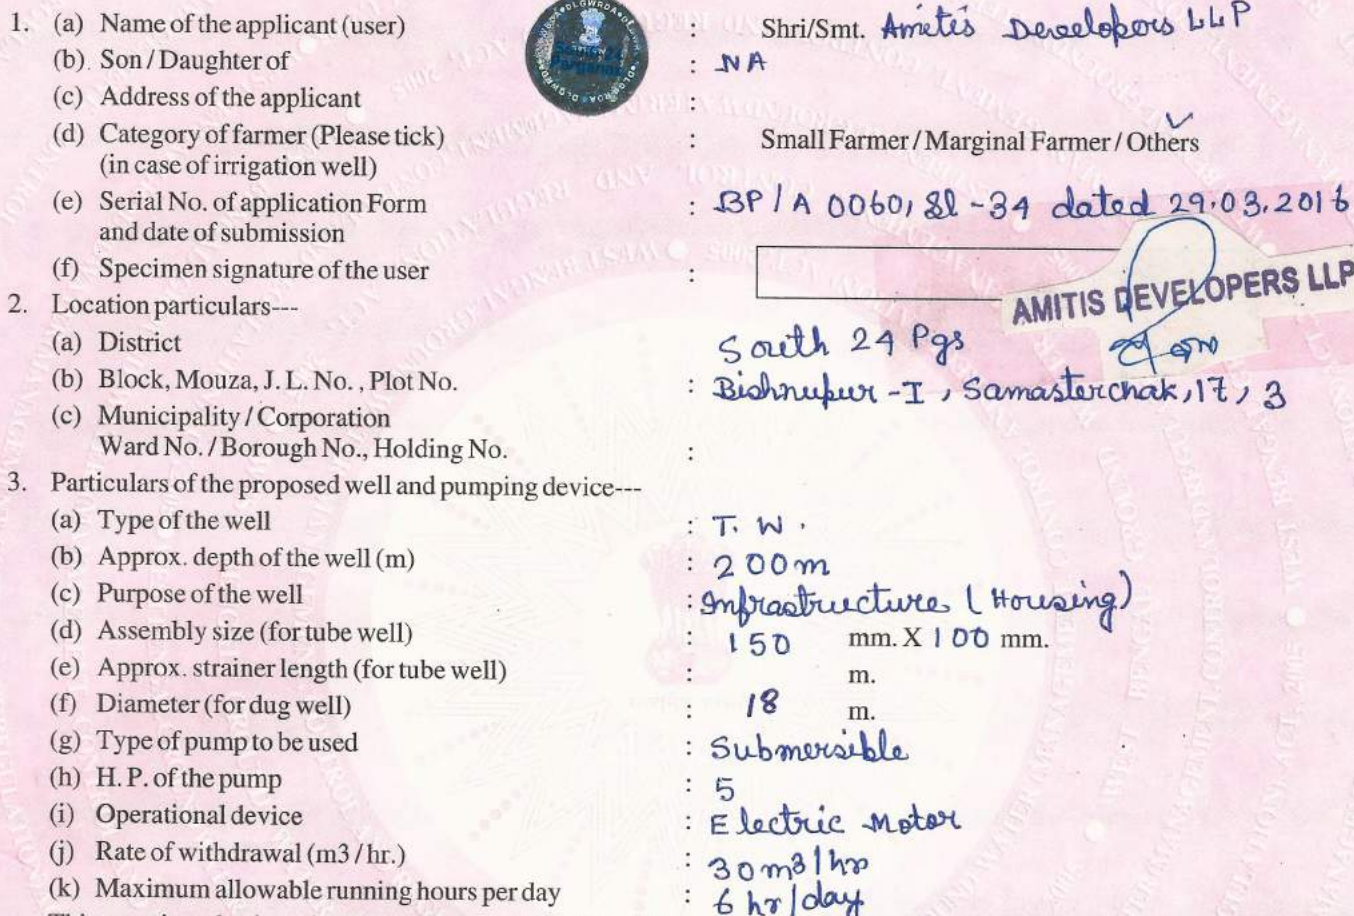 1. (a) Name of the applicant (user) : Shri/Smt. Ametis Developers LLP
(b) Son / Daughter of : NA
(c) Address of the applicant :
(d) Category of farmer (Please tick) : Small Farmer / Marginal Farmer / Others
(in case of irrigation well)
(e) Serial No. of application Form : BP/A 0060, Sl-34 dated 29.03.2016
and date of submission
(f) Specimen signature of the user :
AMITIS DEVELOPERS LLP
2. Location particulars---
(a) District South 24 Pgs
(b) Block, Mouza, J. L. No. , Plot No. : Bishnupur-I, Samasterchak, 17, 3
(c) Municipality / Corporation
Ward No. / Borough No., Holding No. :
3. Particulars of the proposed well and pumping device---
(a) Type of the well : T. W.
(b) Approx. depth of the well (m) : 200m
(c) Purpose of the well : Infrastructure (Housing)
(d) Assembly size (for tube well) : 150 mm. X 100 mm.
(e) Approx. strainer length (for tube well) : m.
(f) Diameter (for dug well) : 18 m.
(g) Type of pump to be used : Submersible
(h) H. P. of the pump : 5
(i) Operational device : Electric Motor
(j) Rate of withdrawal (m3 / hr.) : 30m3/hr
(k) Maximum allowable running hours per day : 6 hr/day